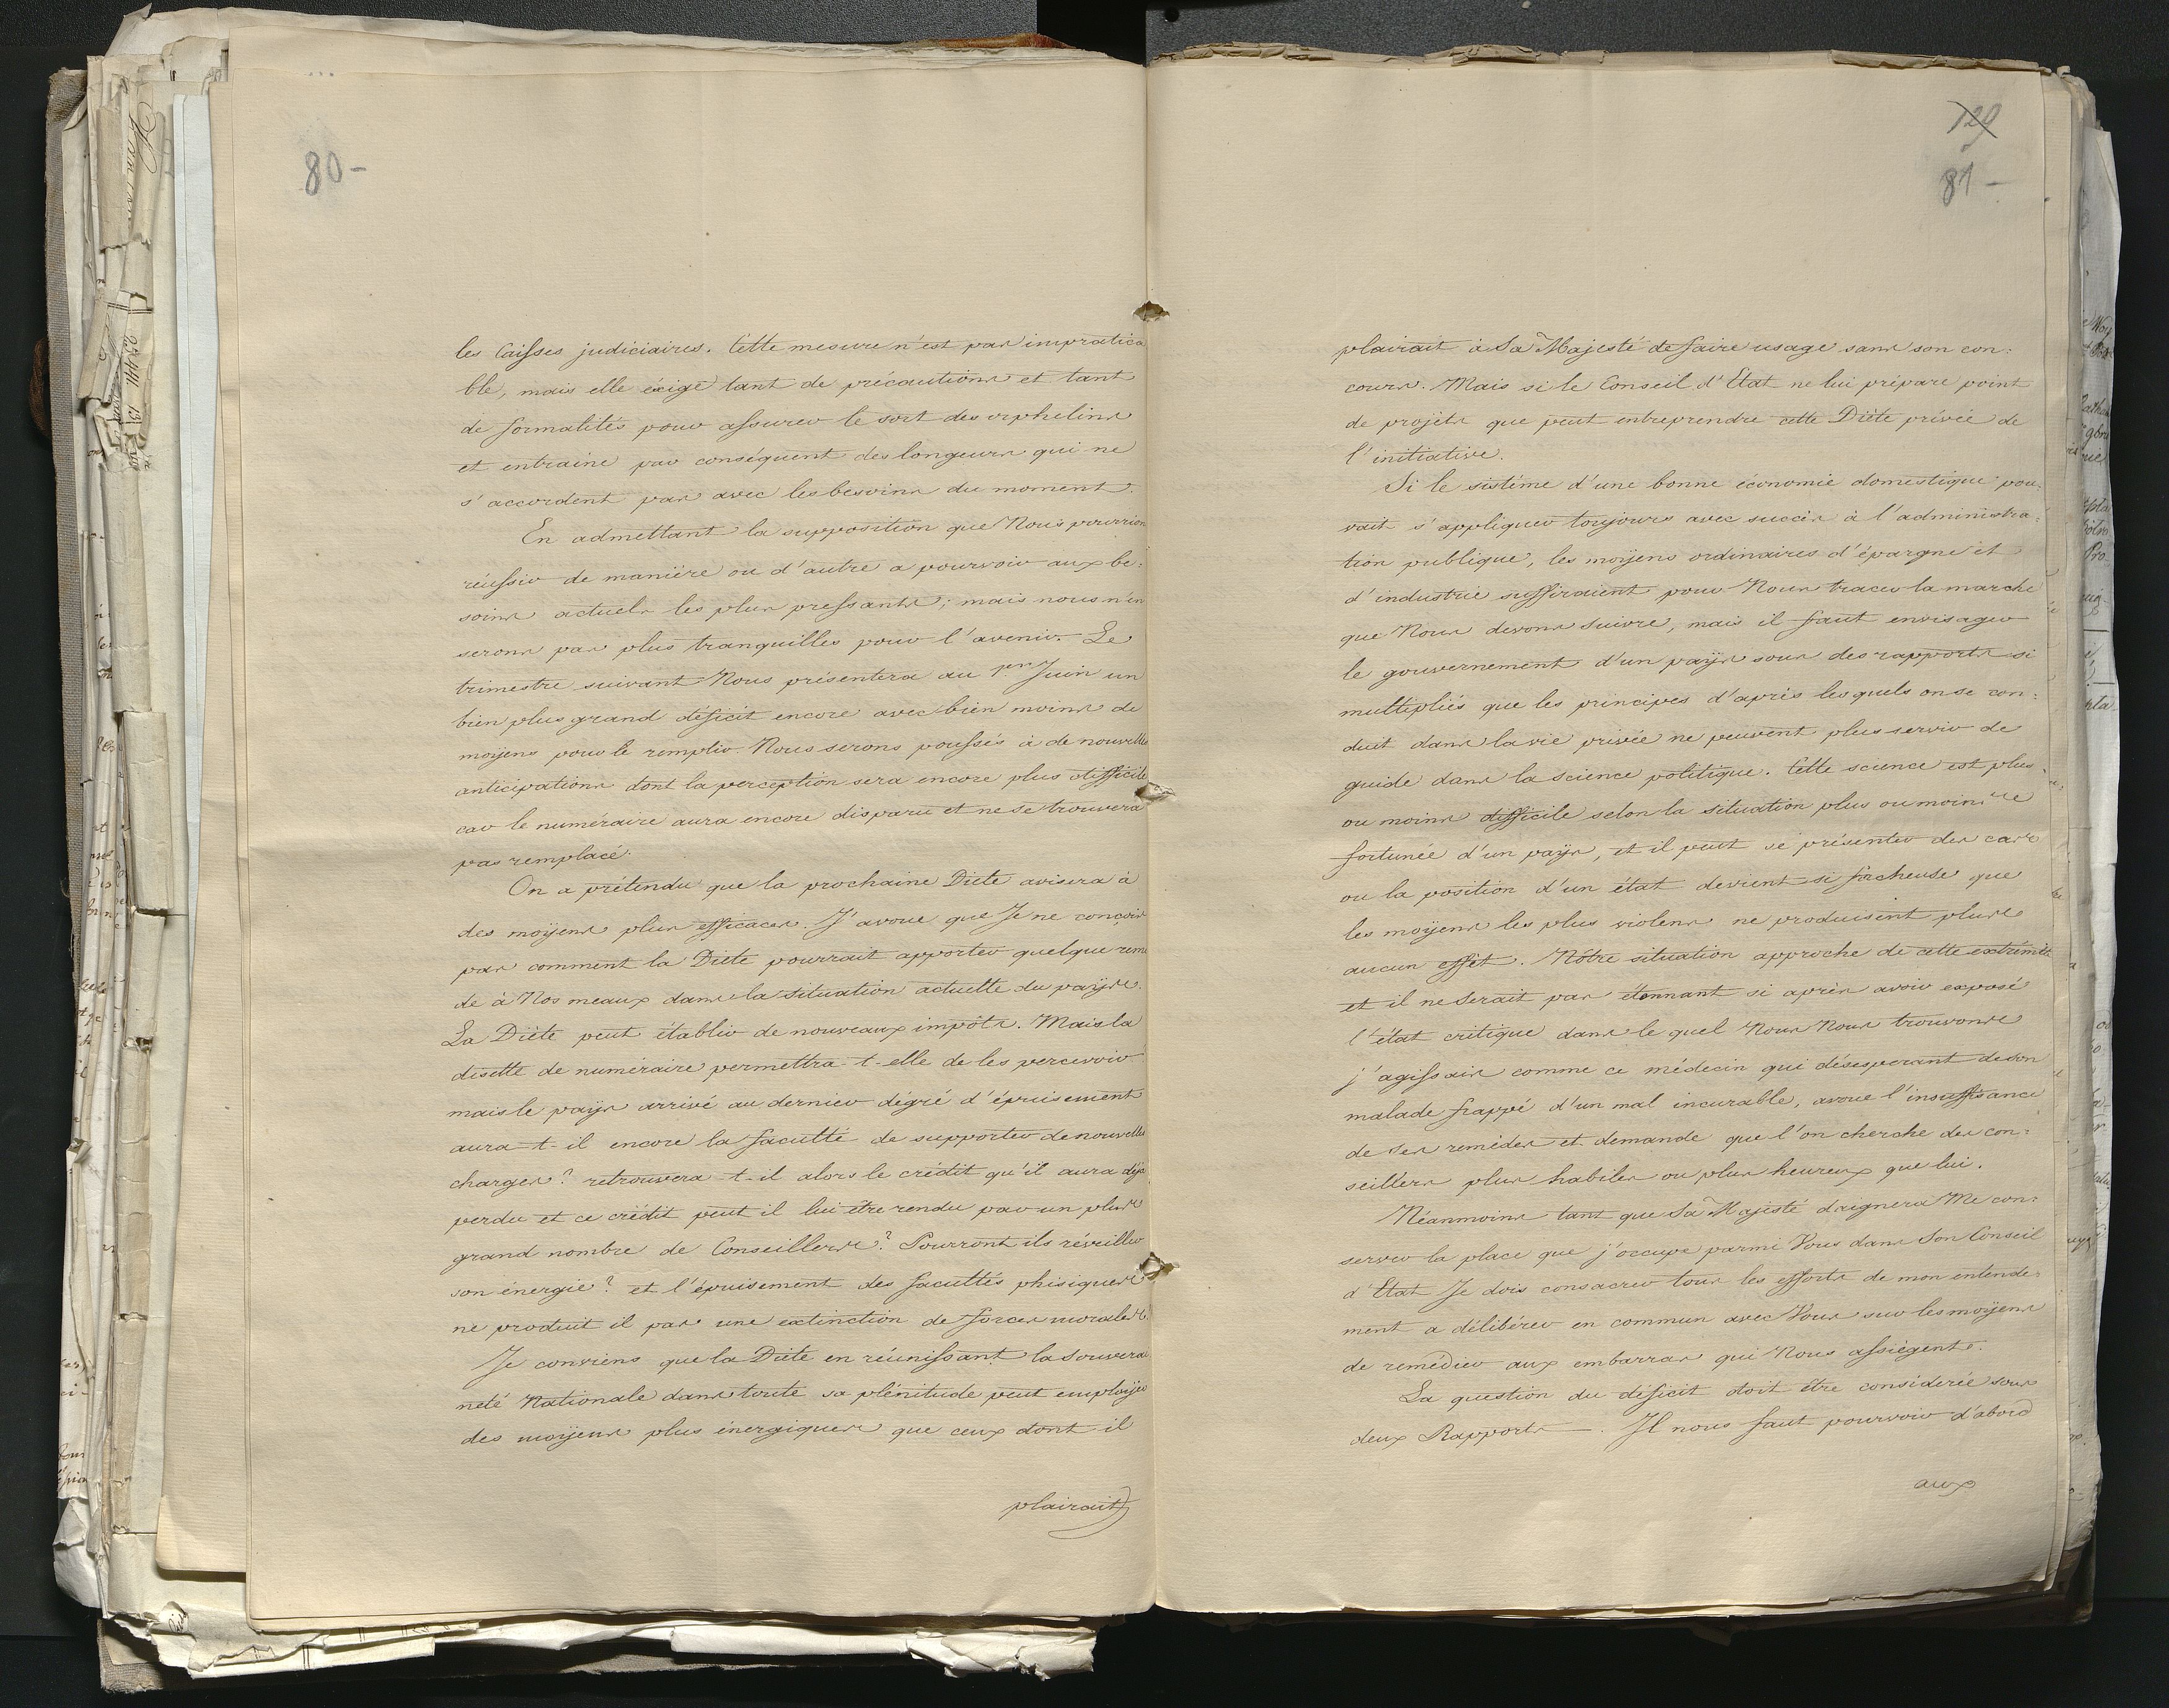 80-
les Caisses judiciaires. Cette mesure n'est pas impratica
ble, mais elle éxige tant de précautions et tant
de formalités pour assurer le sort des orphelins
et entraine par conséquent des longeurs qui ne
s'accordent pas avec les besoins du moment.
En admettant la supposition que Nous pourrion
réussir de maniére ou d'autre a pourvoir aux be:
soins actuels les plus pressants; mais nous n'en
serons pas plus tranquilles pour l'avenir. Le
trimestre suivant Nous présentera au 1er Juin un
bien plus grand déficit encore avec bien moins de
moÿens pour le remplir. Nous serons poussés à de nouvelles
anticipations dont la perception sera encore plus difficile
car le numéraire aura encore disparu et ne se trouvera
pas remplacé.
On a prétendu que la prochaine Diete avisera à
des moÿens plus efficaces. J'avoue que Je ne conçois
pas comment la Diete pourrait apporter quelque reme
de à Nos meaux dans la situation actuelle du paÿs.
La Diète peut établir de nouveaux impôts. Mais la
disette de numéraire permettra-t-elle de les percevoir
mais le paÿs arrivé au dernier dégré d'épuisement
aura-t-il encore la faculté de supporter de nouvelles
charges? retrouvera-t-il alors le crédit qu'il aura déja
perdu et ce crédit peut il lui être rendu par un plus
grand nombre de Conseillers? Pourront ils réveiller
son énergie? et l'épuisement des facultés phisiques
ne produit il pas une extinction de forces morales?
Je conviens que la Diète en réunissant la Souverai
neté Nationale dans toute sa plénitude peut emploÿer
des moÿens plus énergiques que ceux dont il
plairait
120
81-
plairait à Sa Majesté de faire usage sans son con:
cours. Mais si le Conseil d'Etat ne lui prépare point
de projèts que peut entreprendre cette Diète privée de
l'initiative.
Si le sistéme d'une bonne économie domestique pou:
vait s'appliquer toujours avec succès à l'administra:
tion publique, les moÿens ordinaires d'épargne et
d'industrie suffiraient pour Nous tracer la marche
que Nous devons Suivre, mais il faut envisager
le gouvernement d'un paÿs sous des rapports si
multipliés que les principes d'après lesquels on se con:
duit dans la vie privée ne peuvent plus servir de
guide dans la science politique. Cette science est plus
ou moins difficile selon la situation plus ou moins
fortunée d'un paÿs, et il peut se présenter des cas
ou la position d'un état devient si fâcheuse que
les moÿens les plus violens ne produisent plus
aucun effet. Nôtre situation approche de cette extrémité
et il ne Serait pas étonnant si après avoir exposé
l'état critique dans le quel Nous Nous trouvons
j'agissais comme ce médecin qui désesperant de son
malade frappé d'un mal incurable, avoue l'insuffisance
de ses remédes et demande que l'on cherche des con:
seillers plus habiles ou plus heureux que lui.
Néanmoins tant que Sa Majesté daignera Me con:
server la place que j'occupe parmi Vous dans Son Conseil
d'Etat Je dois consacrer tous les efforts de mon entende:
ment a délibérer en commun avec Vous sur les moÿens
de remédier aux embarras qui Nous assiégent.
La question du déficit doit être considerée sous
deux Rapports. Il nous faut pourvoir d'abord
aux